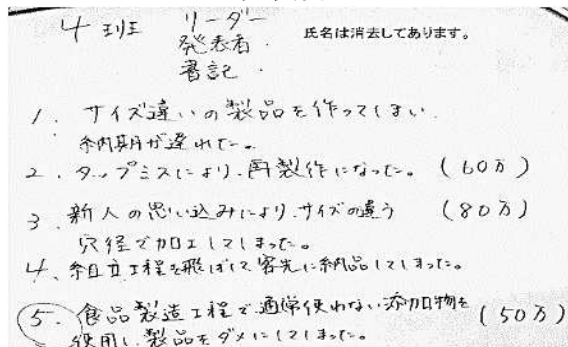 4班 リーダー
発表者・
書記・
氏名は消去してあります。
1. サイズ違いの製品を作ってしまい
納期が遅れた。
2. タップミスにより、再製作になった。(60万)
3. 新人の思い込みにより、サイズの違う (80万)
穴径で加工してしまった。
4. 組立工程を飛ばして客先に納品してしまった。
5. 食品製造工程で通常使わない添加物を (50万)
使用し、製品をダメにしてしまった。